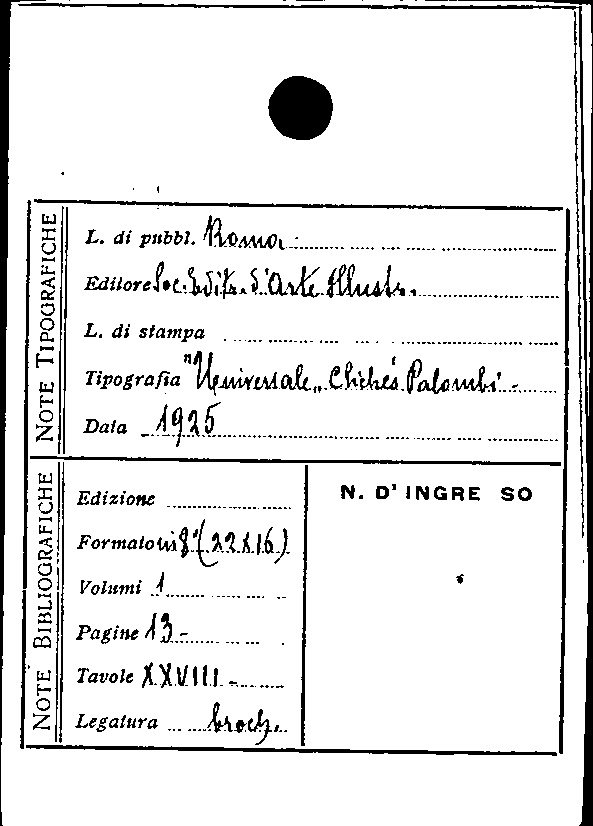 NOTE TIPOGRAFICHE
L. di pubbl. Roma
Editore Soc. Editr. d'Arte Illustr.
L. di stampa
Tipografia "Universale„ Clichés Palombi -
Data 1925
NOTE BIBLIOGRAFICHE
Edizione
Formato in 8° (22x16)
Volumi 1
Pagine 13 -
Tavole XXVIII -
Legatura broch.
N. D'INGRE SO